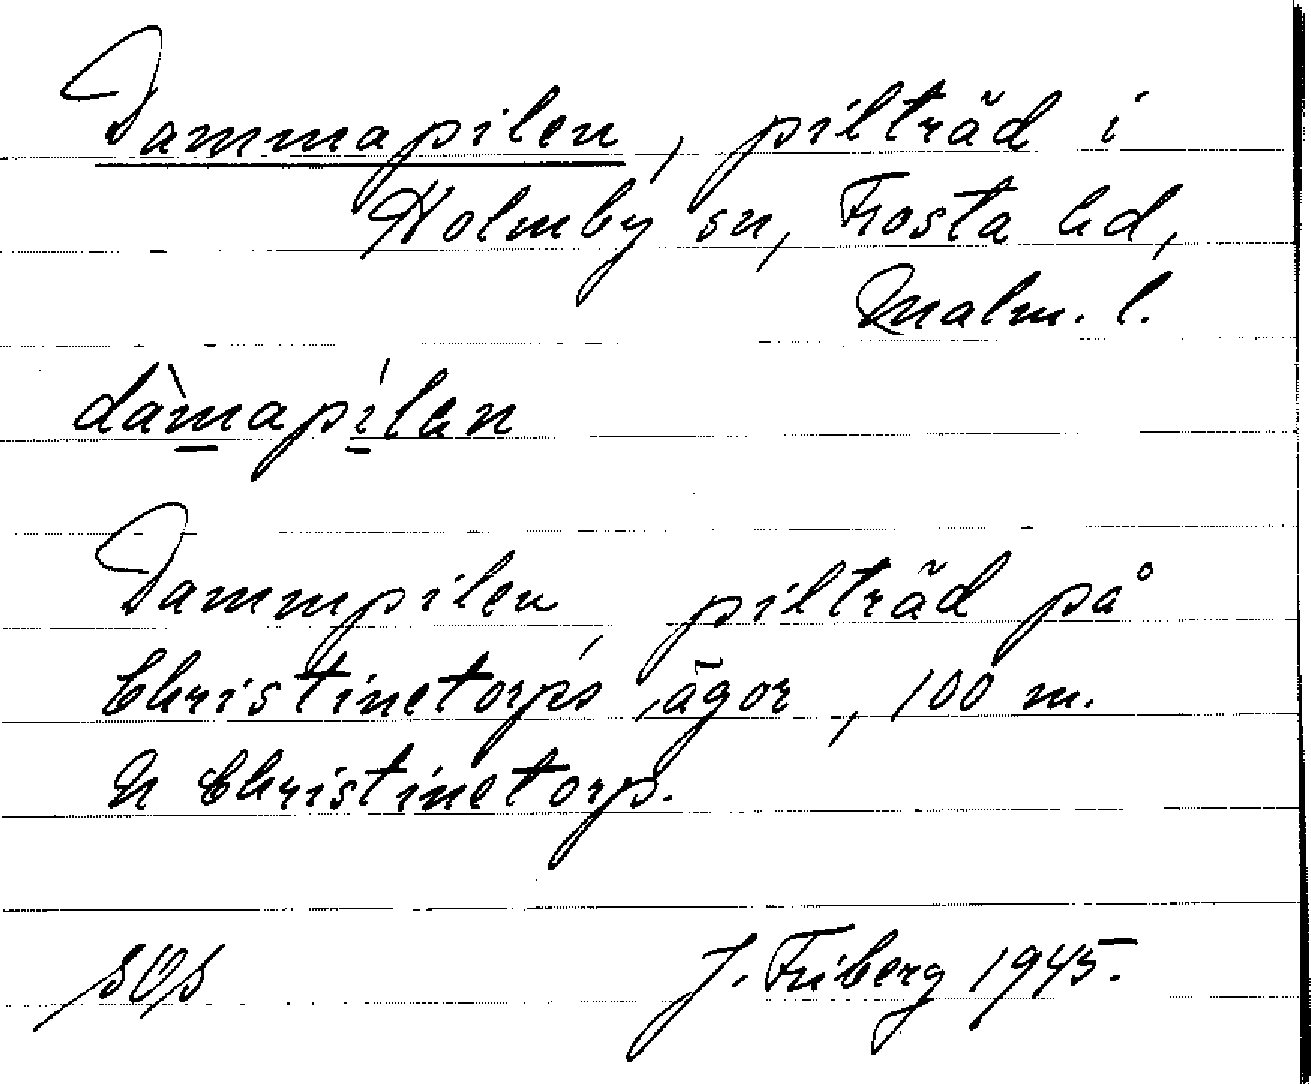 Dammapilen, pilträd i
Holmby sn, Frosta hd,
Malm. l.
dàmapílan
Dammpilen, pilträd på
Christinetorps ägor, 100 m.
N Christinetorp.
J. Friberg 1945.